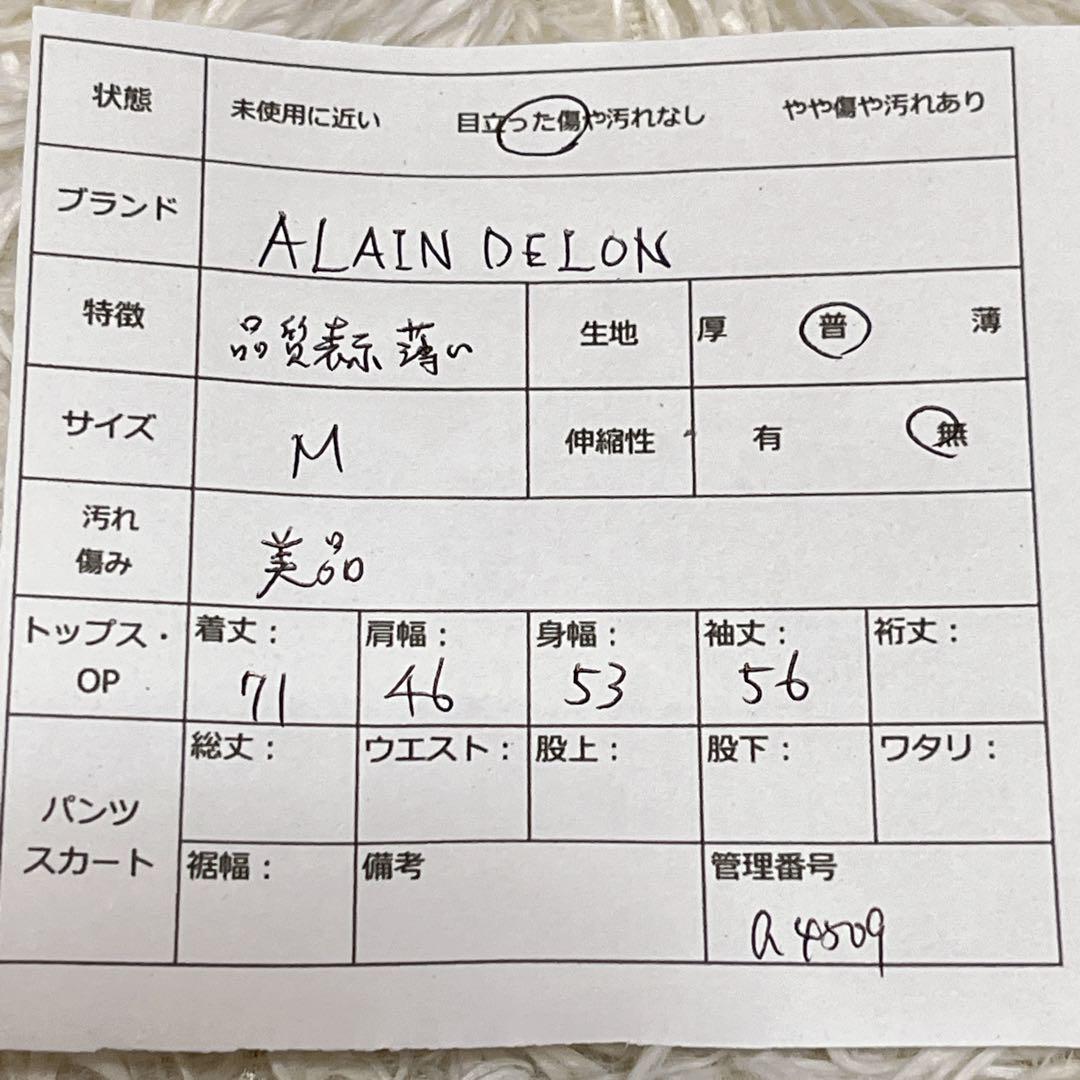 状態 未使用に近い 目立った傷や汚れなし やや傷や汚れあり
ブランド ALAIN DELON
特徴 品質表示薄い 生地 厚 普 薄
サイズ M 伸縮性 有 無
汚れ
傷み 美品
トップス・
OP
着丈: 肩幅: 身幅: 袖丈: 裄丈:
71 46 53 56
パンツ
スカート
総丈: ウエスト: 股上: 股下: ワタリ:
裾幅: 備考 管理番号
a4509